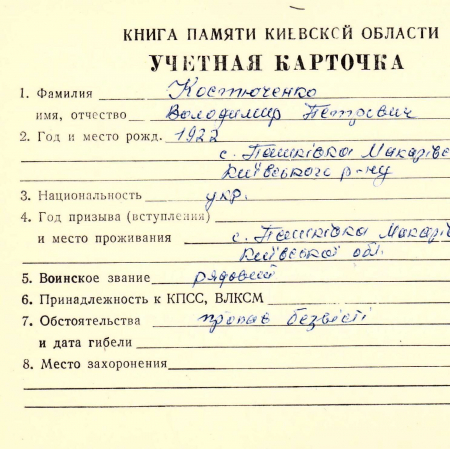 КНИГА ПАМЯТИ КИЕВСКОЙ ОБЛАСТИ
УЧЕТНАЯ КАРТОЧКА
1. Фамилия Костюченко
имя, отчество Володимир Петрович
2. Год и место рожд. 1922
с. Пашківка Макарівс
Київського р-ну
3. Национальность укр.
4. Год призыва (вступления)
и место проживания с. Пашківка Макарів
Київської обл.
5. Воинское звание рядовий
6. Принадлежность к КПСС, ВЛКСМ
7. Обстоятельства пропав безвісті
и дата гибели
8. Место захоронения